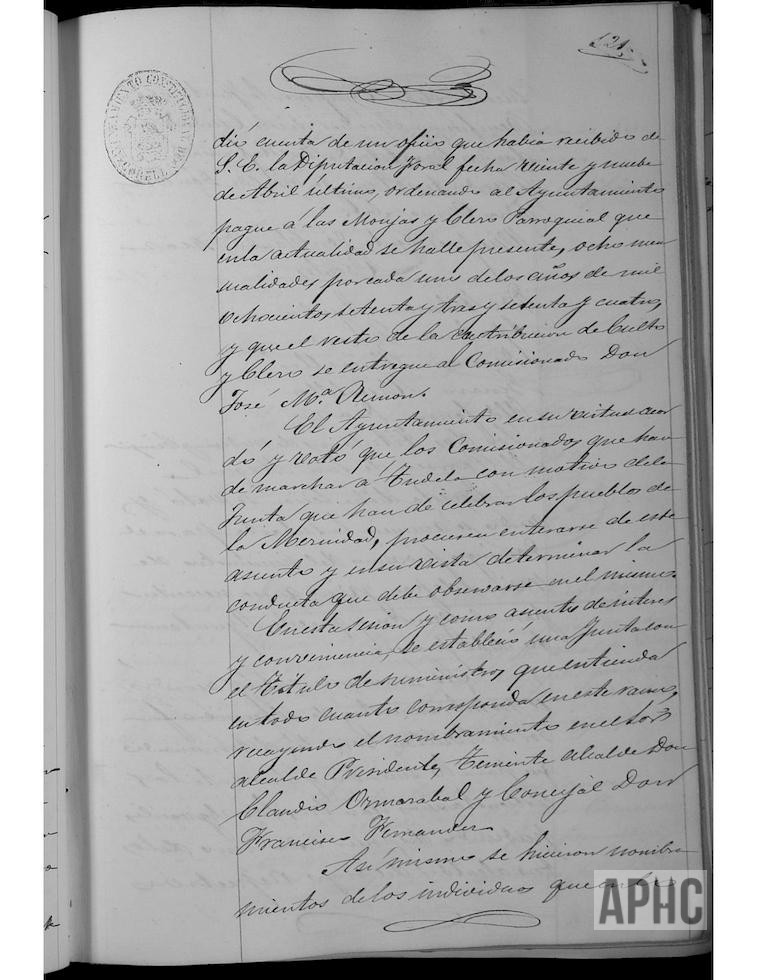 121
AYUNTAMIENTO CONSTITUCIONAL DE
dió cuenta de un oficio que habia recibido de
S. E. la Diputacion Foral fecha veinte y nuebe
de Abril ultimo, ordenando al Ayuntamiento
pague á las Monjas y Clero Parroquial que
en la actualidad se halle presente, ocho men
sualidades por cada uno de los años de mil
ochocientos setenta y tres y setenta y cuatro,
y que el resto de la contribucion de Culto
y Clero se entregue al Comisionado Don
José Mª. Remon.
El Ayuntamiento en su virtud acor
dó y votó que los Comisionados que han
de marchar á Tudela con motivo de la
Junta que han de celebrar los pueblos de
la Merindad, procuren enterarse de este
asunto y en su vista determinar la
conducta que debe observarse en el mismo.
En esta sesion y como asunto de interes
y conveniencia, se estableció una Junta con
el titulo de suministros, que entienda
en todo cuanto corresponda en este ramo,
recayendo el nombramiento en el Sor
Alcalde Presidente, Teniente Alcalde Don
Claudio Ormazabal y Concejal Don
Francisco Fernandez
Asi mismo se hicieron nombra
mientos de los individuos que en lo
APHC